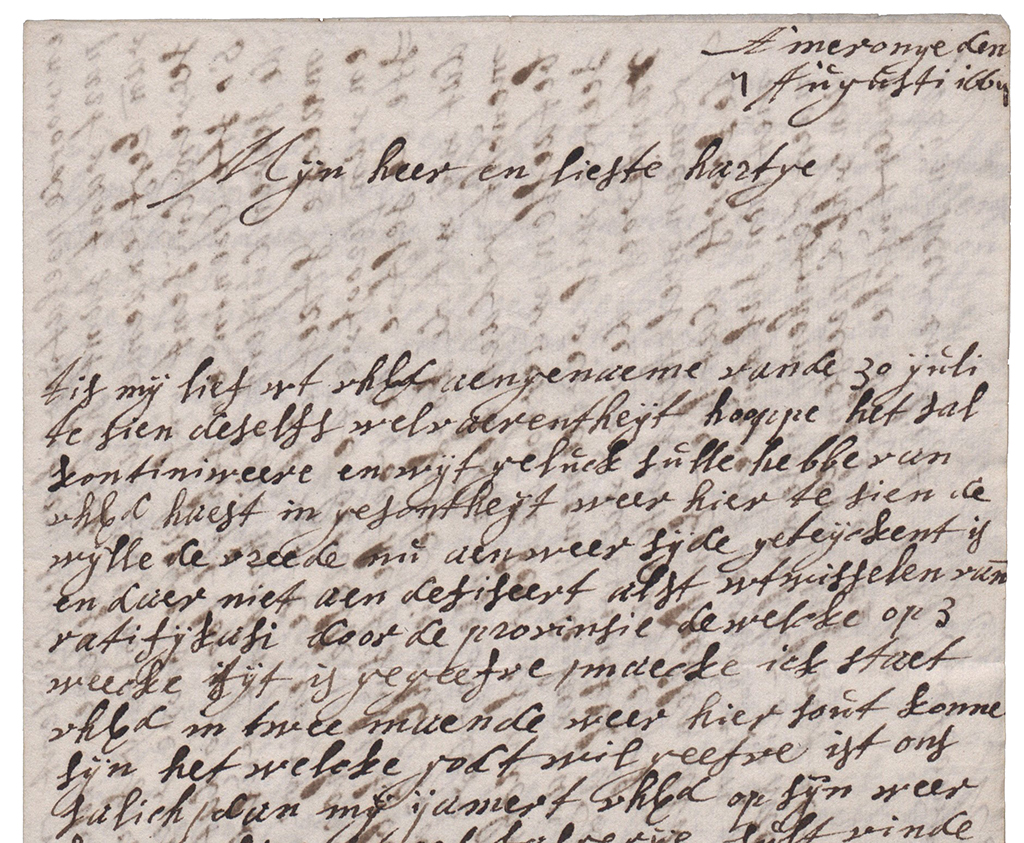 Ameronge den
7 Augusti 166
Myn heer en liefste hartye
tis my lief wt uhEd aengenaeme vande 30 yuli
te sien deselfs welvaerentheyt hoope het sal
kontiniweere en wyt geluck sulle hebbe van
uhEd haest in gesontheyt weer hier te sien de
wylle de vreede nu aen weer syde geteyckent is
en daer niet aen desiseert alst wtwisselen van
ratifykasi door de provinsie dewelcke op 3
weecke tyt is gegeefve maecke ick staet
uhEd in twee maende weer hier sout konne
syn het welcke godt wil geefve ist ons
salich dan my yamert uhEd op syn weer
vinde